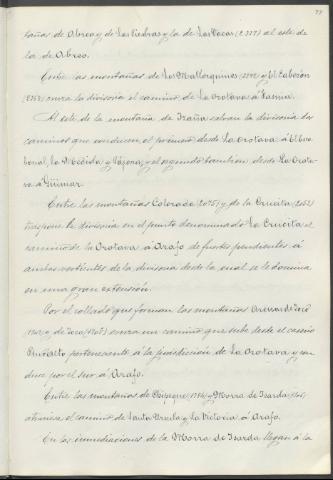 tañas de Abreo y de las Piedras y la de las Vacas (2.777) al este de
la de Abreo.
Entre las montañas de Los Mallorquines y El Cabezon
cruza la divisoria el camino de La Orotava á Fasnia.
Al este de la montaña de Izaña salvan la divisoria dos
caminos que conducen el primero desde La Orotava á El
la Medida y y el segundo tambien desde La Orota-
va á Güimar.
Entre las montañas Colorada y de la Crucita
traspone la divisoria en el punto denominado La Crucita el
camino de la Orotava á Arafo de fuertes pendientes á
ambas vertientes de la divisoria desde la cual se le domina
en una gran extension.
Por el collado que forman las montañas
y de Joco cruza un camino que sube desde el caserio
perteneciente á la jurisdiccion de La Orotava y con-
duce por el sur á Arafo.
Entre las montañas de y Morra de Isarda
atraviesa el camino de Santa Ursula y La Victoria á Arafo.
En las inmediaciones de la Morra de Isarda llegan á la